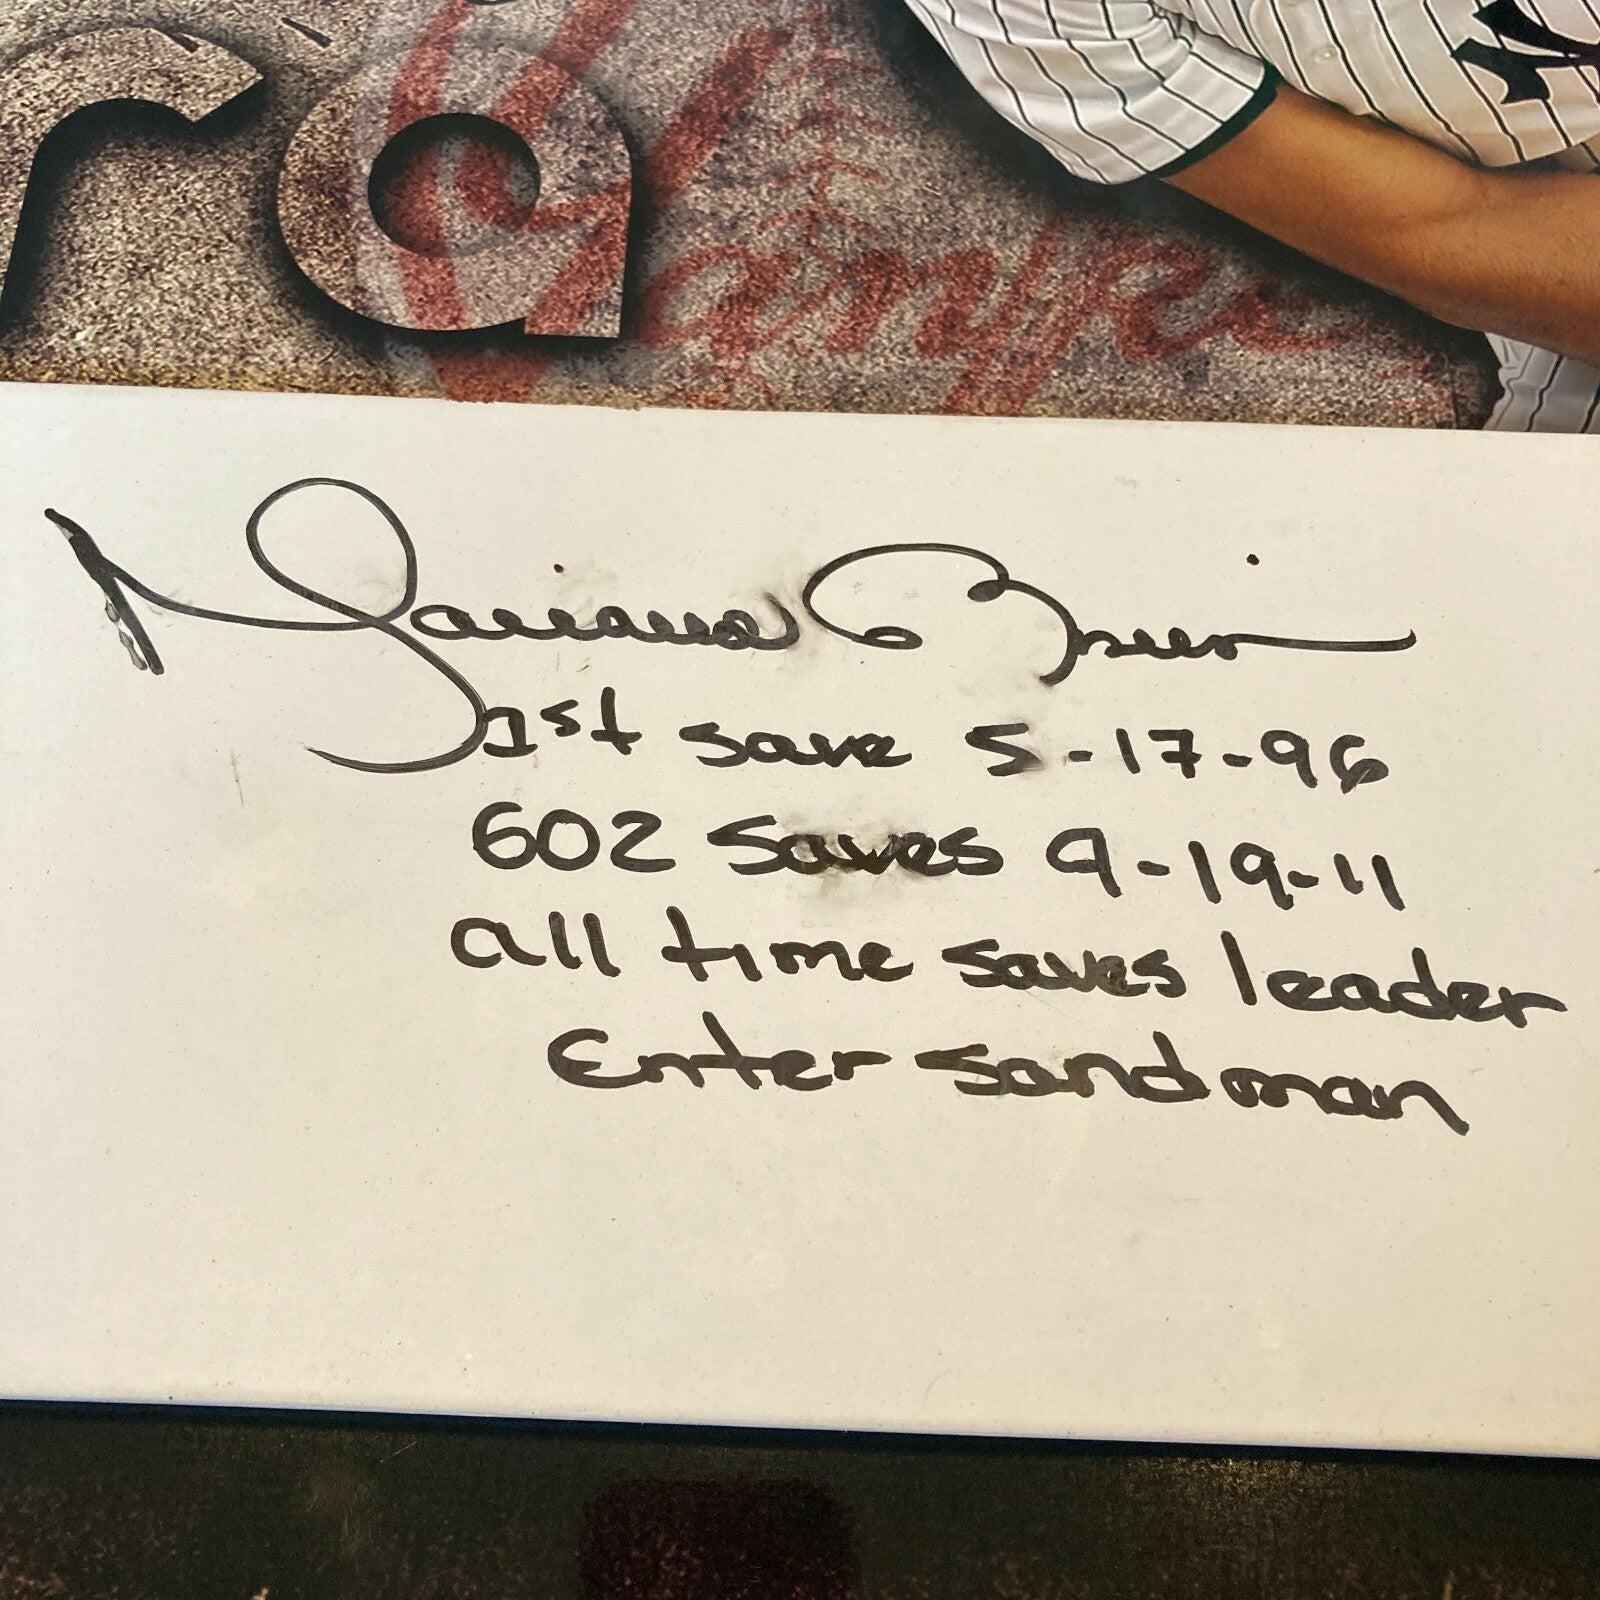 ra
Yankees
Mariano Rivera
1st save 5-17-96
602 saves 9-19-11
all time saves leader
Enter sandman